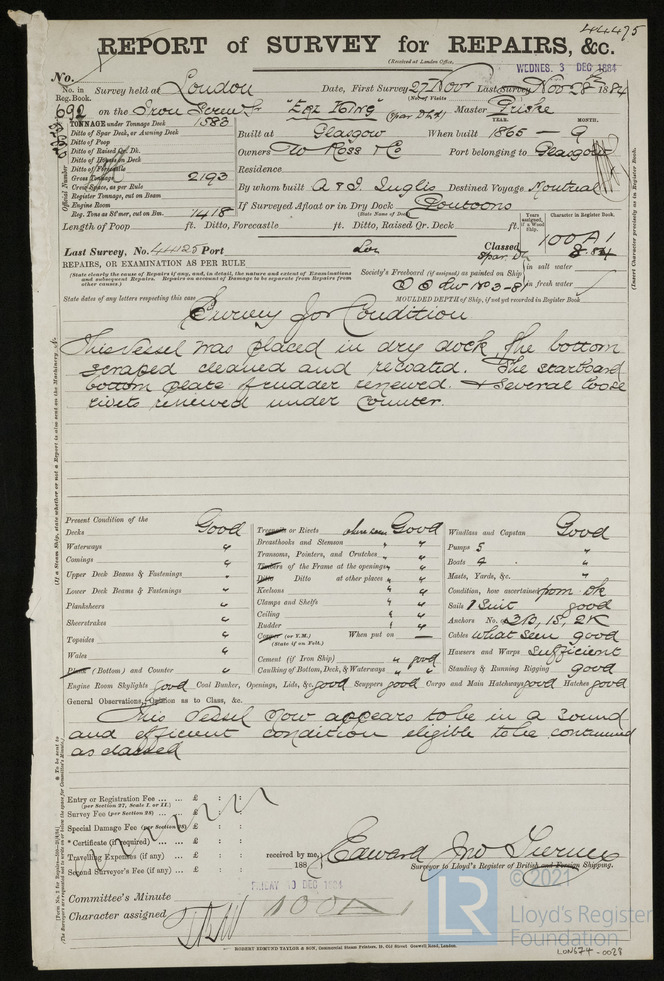 44475
REPORT of SURVEY for REPAIRS, &c.
(Received at London Office,
WEDNES. 3 DEC 1884
No.
No. in Reg. Book. Survey held at London Date, First Survey 27 Nov Last Survey Nov 28th 1884
(No. of Visits
692 on the Iron Screw Sr "Erl King" (Spar Dkd) Master
TONNAGE under Tonnage Deck 1583
Ditto of Spar Deck, or Awning Deck
Ditto of Poop
Ditto of Raised Qr. Dk.
Ditto of Houses on Deck
Ditto of Forecastle
Gross Tonnage 2193
Crew Space, as per Rule
Register Tonnage, cut on Beam
Engine Room
Reg. Tons as St'mer, cut on Bm. 1418
Official Number
YEAR. MONTH.
Built at Glasgow When built 1865 - 9
Owners W Ross & Co Port belonging to Glasgow
Residence
By whom built A & J. Inglis Destined Voyage Montreal
If Surveyed Afloat or in Dry Dock Pontoons
(State Name of Dock)
Length of Poop ft. Ditto, Forecastle ft. Ditto, Raised Qr. Deck ft.
Years assigned, if a Wood Ship. Character in Register Book.
Last Survey, No. 44125 Port Lon Classed 100A1
Spar. Dk 8.84
REPAIRS, OR EXAMINATION AS PER RULE
(State clearly the cause of Repairs if any, and, in detail, the nature and extent of Examinations and subsequent Repairs. Repairs on account of Damage to be separate from Repairs from other causes.)
Society's Freeboard (if assigned) as painted on Ship in salt water
in fresh water
State dates of any letters respecting this case
MOULDED DEPTH of Ship, if not yet recorded in Register Book
(Insert Character precisely as in Register Book.
Survey for Condition
This vessel was placed in dry dock, the bottom
scraped cleaned and recoated. The starboard
bottom plate of rudder renewed. & Several loose
rivets renewed under Counter.
Present Condition of the
Decks Good
Waterways "
Comings "
Upper Deck Beams & Fastenings "
Lower Deck Beams & Fastenings "
Planksheers "
Sheerstrakes "
Topsides "
Wales "
Plank (Bottom) and Counter "
Treenails or Rivets where seen Good
Breasthooks and Stemson " "
Transoms, Pointers, and Crutches " "
Timbers of the Frame at the openings " "
Ditto Ditto at other places " "
Keelsons " "
Clamps and Shelfs " "
Ceiling " "
Rudder " "
Copper (or Y.M.) When put on —
(State if on Felt.)
Cement (if Iron Ship) " good
Caulking of Bottom, Deck, & Waterways " "
Windlass and Capstan Good
Pumps 5 "
Boats 4 "
Masts, Yards, &c. "
Condition, how ascertained from Dk
Sails 1 Suit good
Anchors No. of 2B, 1S, 2K
Cables what seen good
Hawsers and Warps Sufficient
Standing & Running Rigging good
Engine Room Skylights good Coal Bunker, Openings, Lids, &c. good Scuppers good Cargo and Main Hatchways good Hatches good
General Observations, Opinion as to Class, &c.
This vessel now appears to be in a Sound
and efficient condition eligible to be continued
as classed
Entry or Registration Fee ... ... £ : :
(per Section 27, Scale I. or II.)
Survey Fee (per Section 28) ... £ : :
Special Damage Fee (per Section 28) £ : :
*Certificate (if required) ... ... £ : :
Travelling Expenses (if any) ... £ : :
Second Surveyor's Fee (if any) ... £ : :
received by me,
188
Edward Jno Turner
Surveyor to Lloyd's Register of British and Foreign Shipping.
Committee's Minute
DEC 1884
Character assigned 100A1
ROBERT EDMUND TAYLOR & SON, Commercial Steam Printers, 19, Old Street, Goswell Road, London.
LR
© 2021
Lloyd's Register
Foundation
LON574-0028